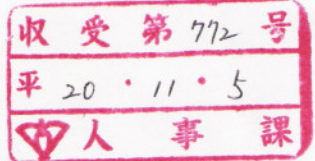 収受第772号
平20・11・5
人事課